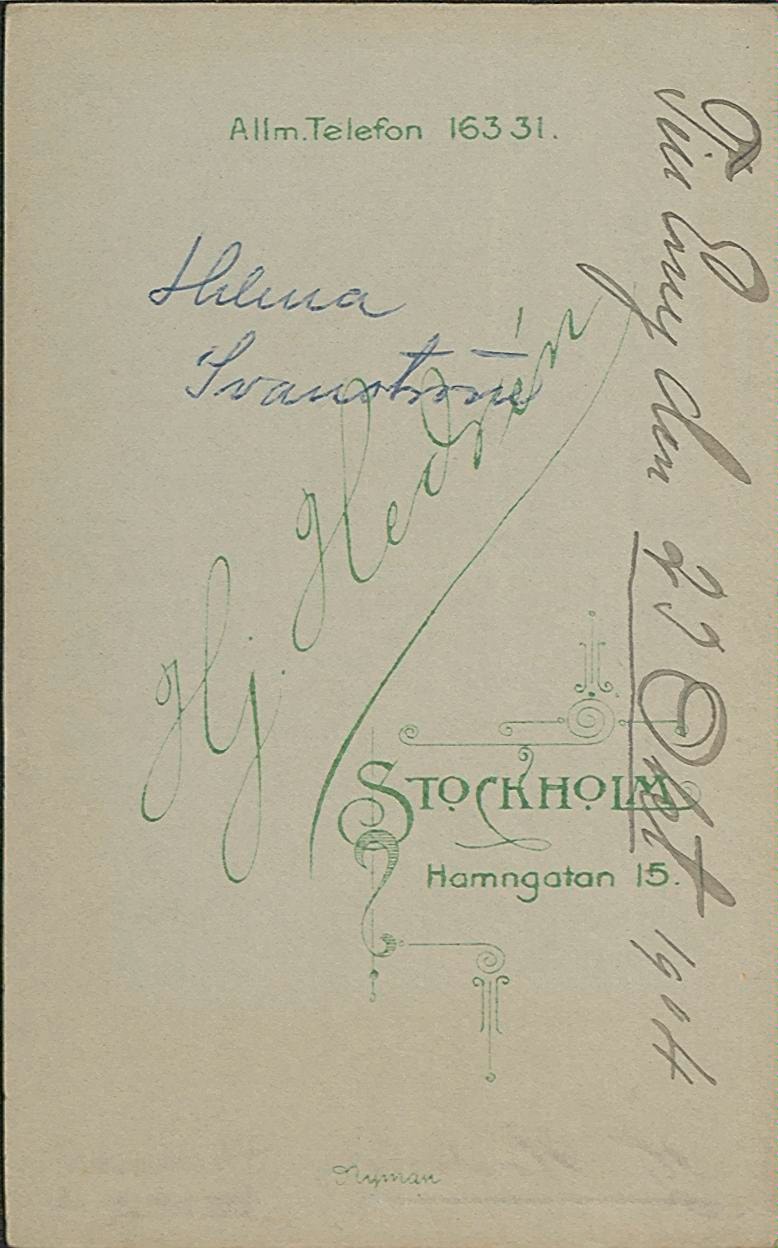 Allm. Telefon 163 31.
Helena
Svanström
Hj. Hedrén
STOCKHOLM
Hamngatan 15.
Nyman
Till Emy den 23 Okt 1914